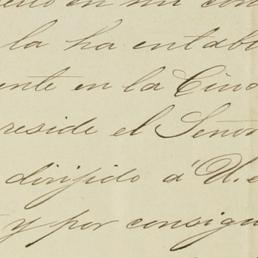 en mi con
la ha entab
ente en la Ciu
reside el Señor
dirijido á U.
y por consigu